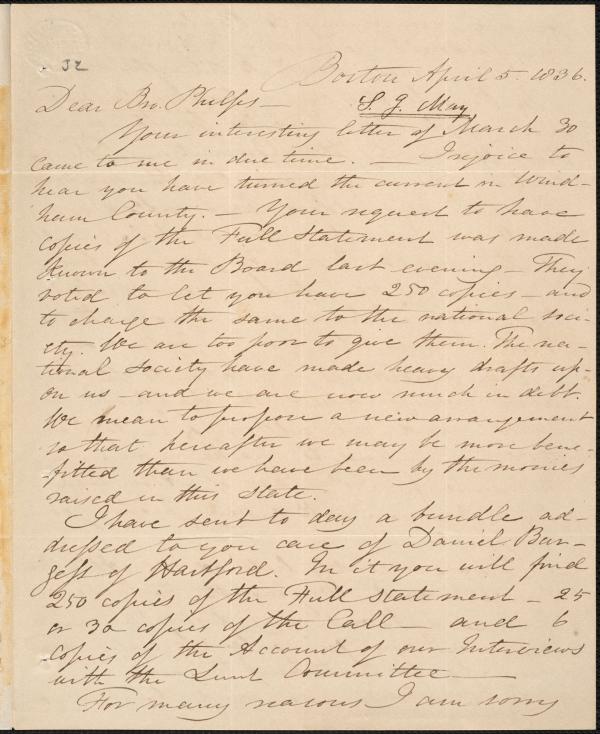 32
Boston April 5. 1836.
Dear Bro. Phelps—
S. J. May
Your interesting letter of March 30
came to me in due time. — I rejoice to
hear you have turned the current in Wind-
ham County. — Your request to have
copies of the Full Statement was made
known to the Board last evening — They
voted to let you have 250 copies — and
to charge the same to the national soci-
ety. We are too poor to give them. The na-
tional society have made heavy drafts up-
on us — and we are now much in debt.
We mean to propose a new arrangement
so that hereafter we may be more bene-
fitted than we have been by the monies
raised in this state.
I have sent to day a bundle ad-
dressed to you care of Daniel Bur-
gess of Hartford. In it you will find
250 copies of the Full Statement — 25
or 30 copies of the Call — and 6
copies of the Account of our Interviews
with the Lunt Committee —
For many reasons I am sorry